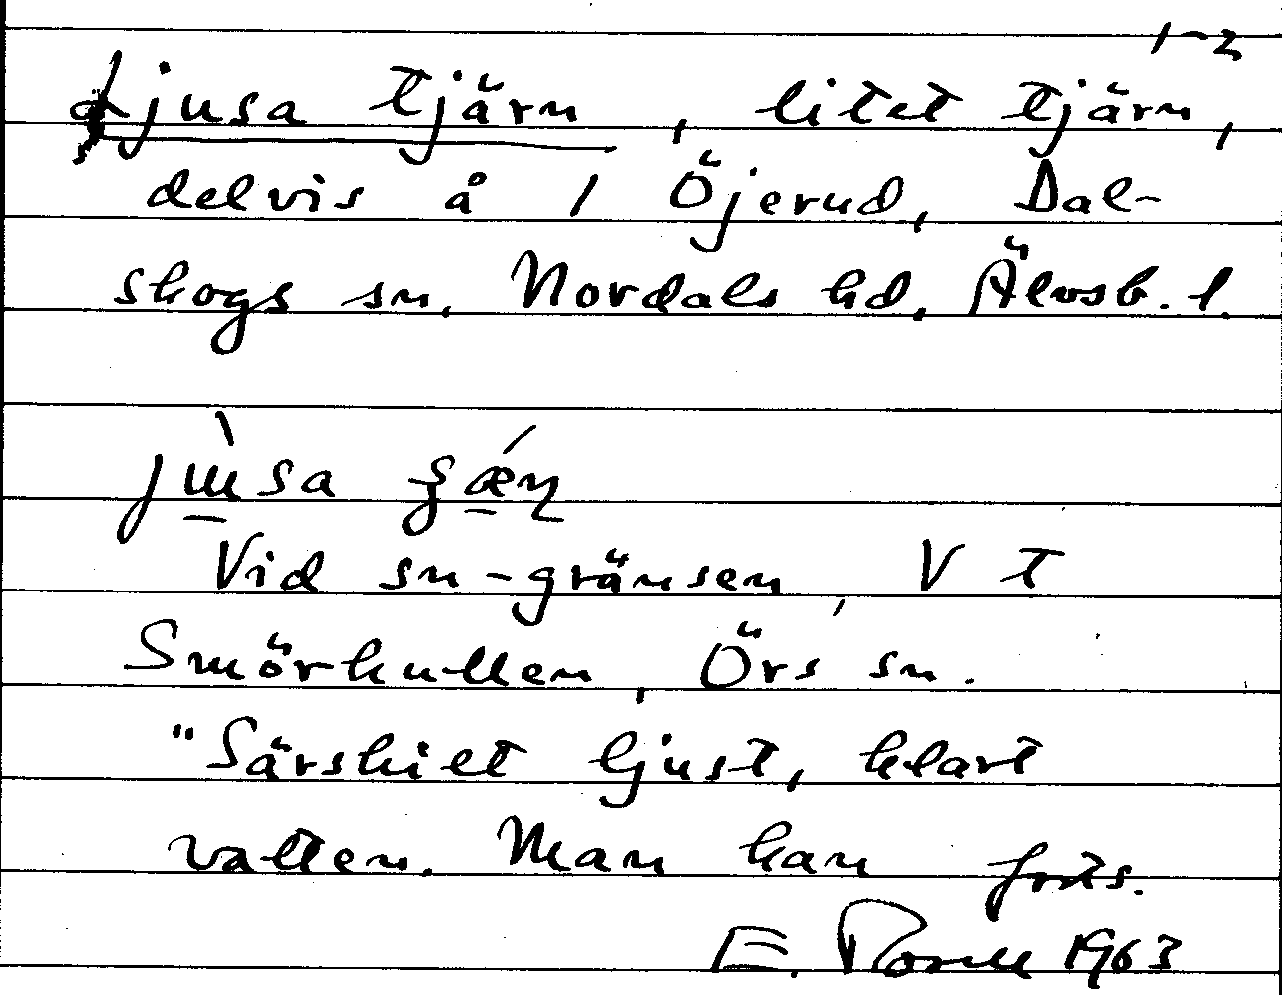 1-2
Ljusa tjärn, litet tjärn,
delvis å 1 Öjerud, Dal-
skogs sn, Nordals hd, Älvsb. l.
Vid sn-gränsen, V T
Smörkullen, Örs sn.
"Särskilt ljust, klart
vatten. Man kan forts.
E. 1963